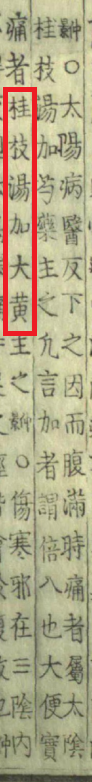 ○太陽病醫反下之因而腹滿時痛者屬太陰
桂枝湯加芍藥主之凡言加者謂倍入也大便實
痛者桂枝湯加大黄主之○傷寒邪在三陰内